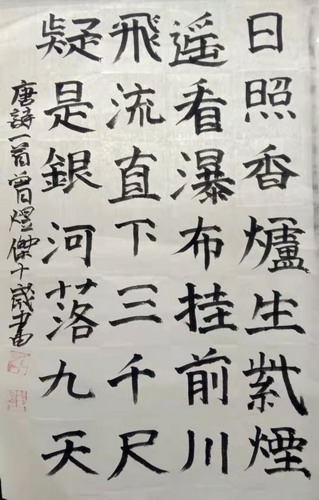 日照香爐生紫煙
遥看瀑布挂前川
飛流直下三千尺
疑是銀河落九天
唐詩一首曾煜傑十歲書